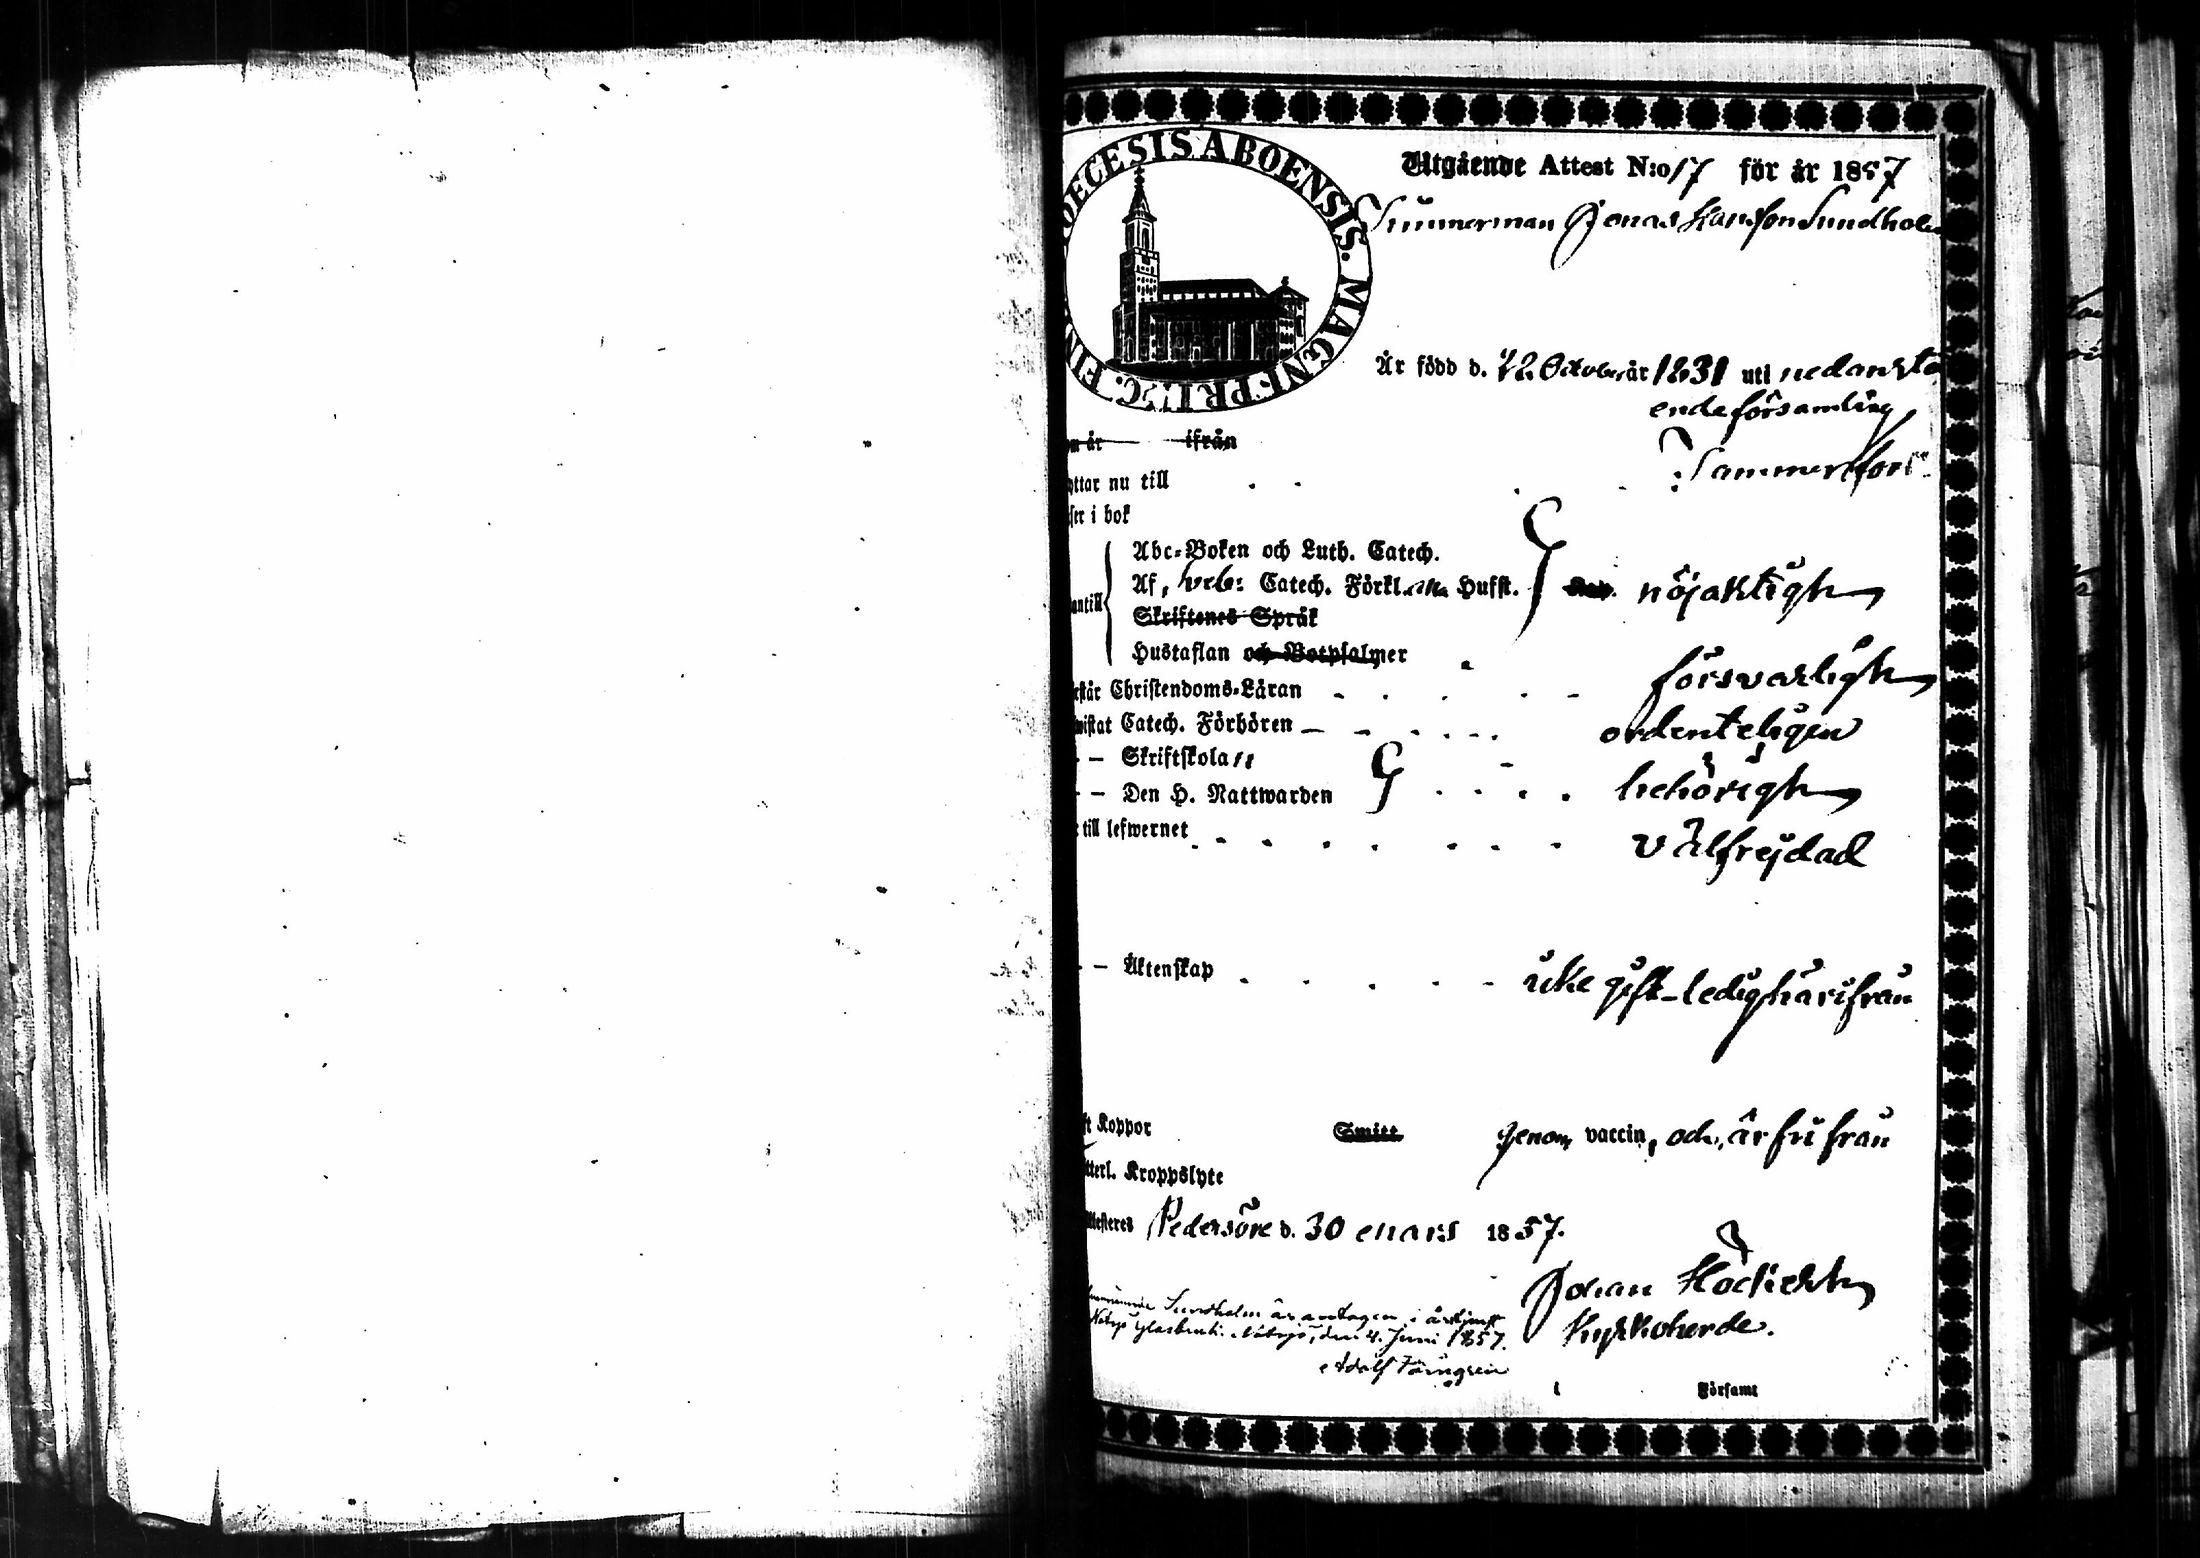 DIOECESIS ABOENSIS. MAGNI PRINC. FIN
Utgående Attest N:o 17 för år 1857
Timmerman Jonas Hansson Sundholm
Är född d. 12 October år 1831 uti nedanstå
ende församling,
om år ifrån
yttar nu till Tammerfors
äser i bok
Abc-Boken och Luth. Catech.
Af, veb: Catech. Förkl. Husst. nöjaktigt
antill
Skriftenes Språk
Hustaflan och Botpsalmer
estår Christendoms-Läran försvarligt
wistat Catech. Förhören ordenteligen
- – Skriftskolan
- – Den H. Nattwarden behörigt
till lefwernet välfrejdad
- – Äktenskap icke gift - ledig härifrån
ft Koppor Smitt genom vaccin, och, är fri från
tterl. Kroppslyte
Attesteres Pedersöre d. 30 Mars 1857.
Johan Höckert
Kyrkoherde.
Sundholm är antagen i årstjenst
Glasbruk. den 4. Juni 1857.
Adolf Törngren
i Församl